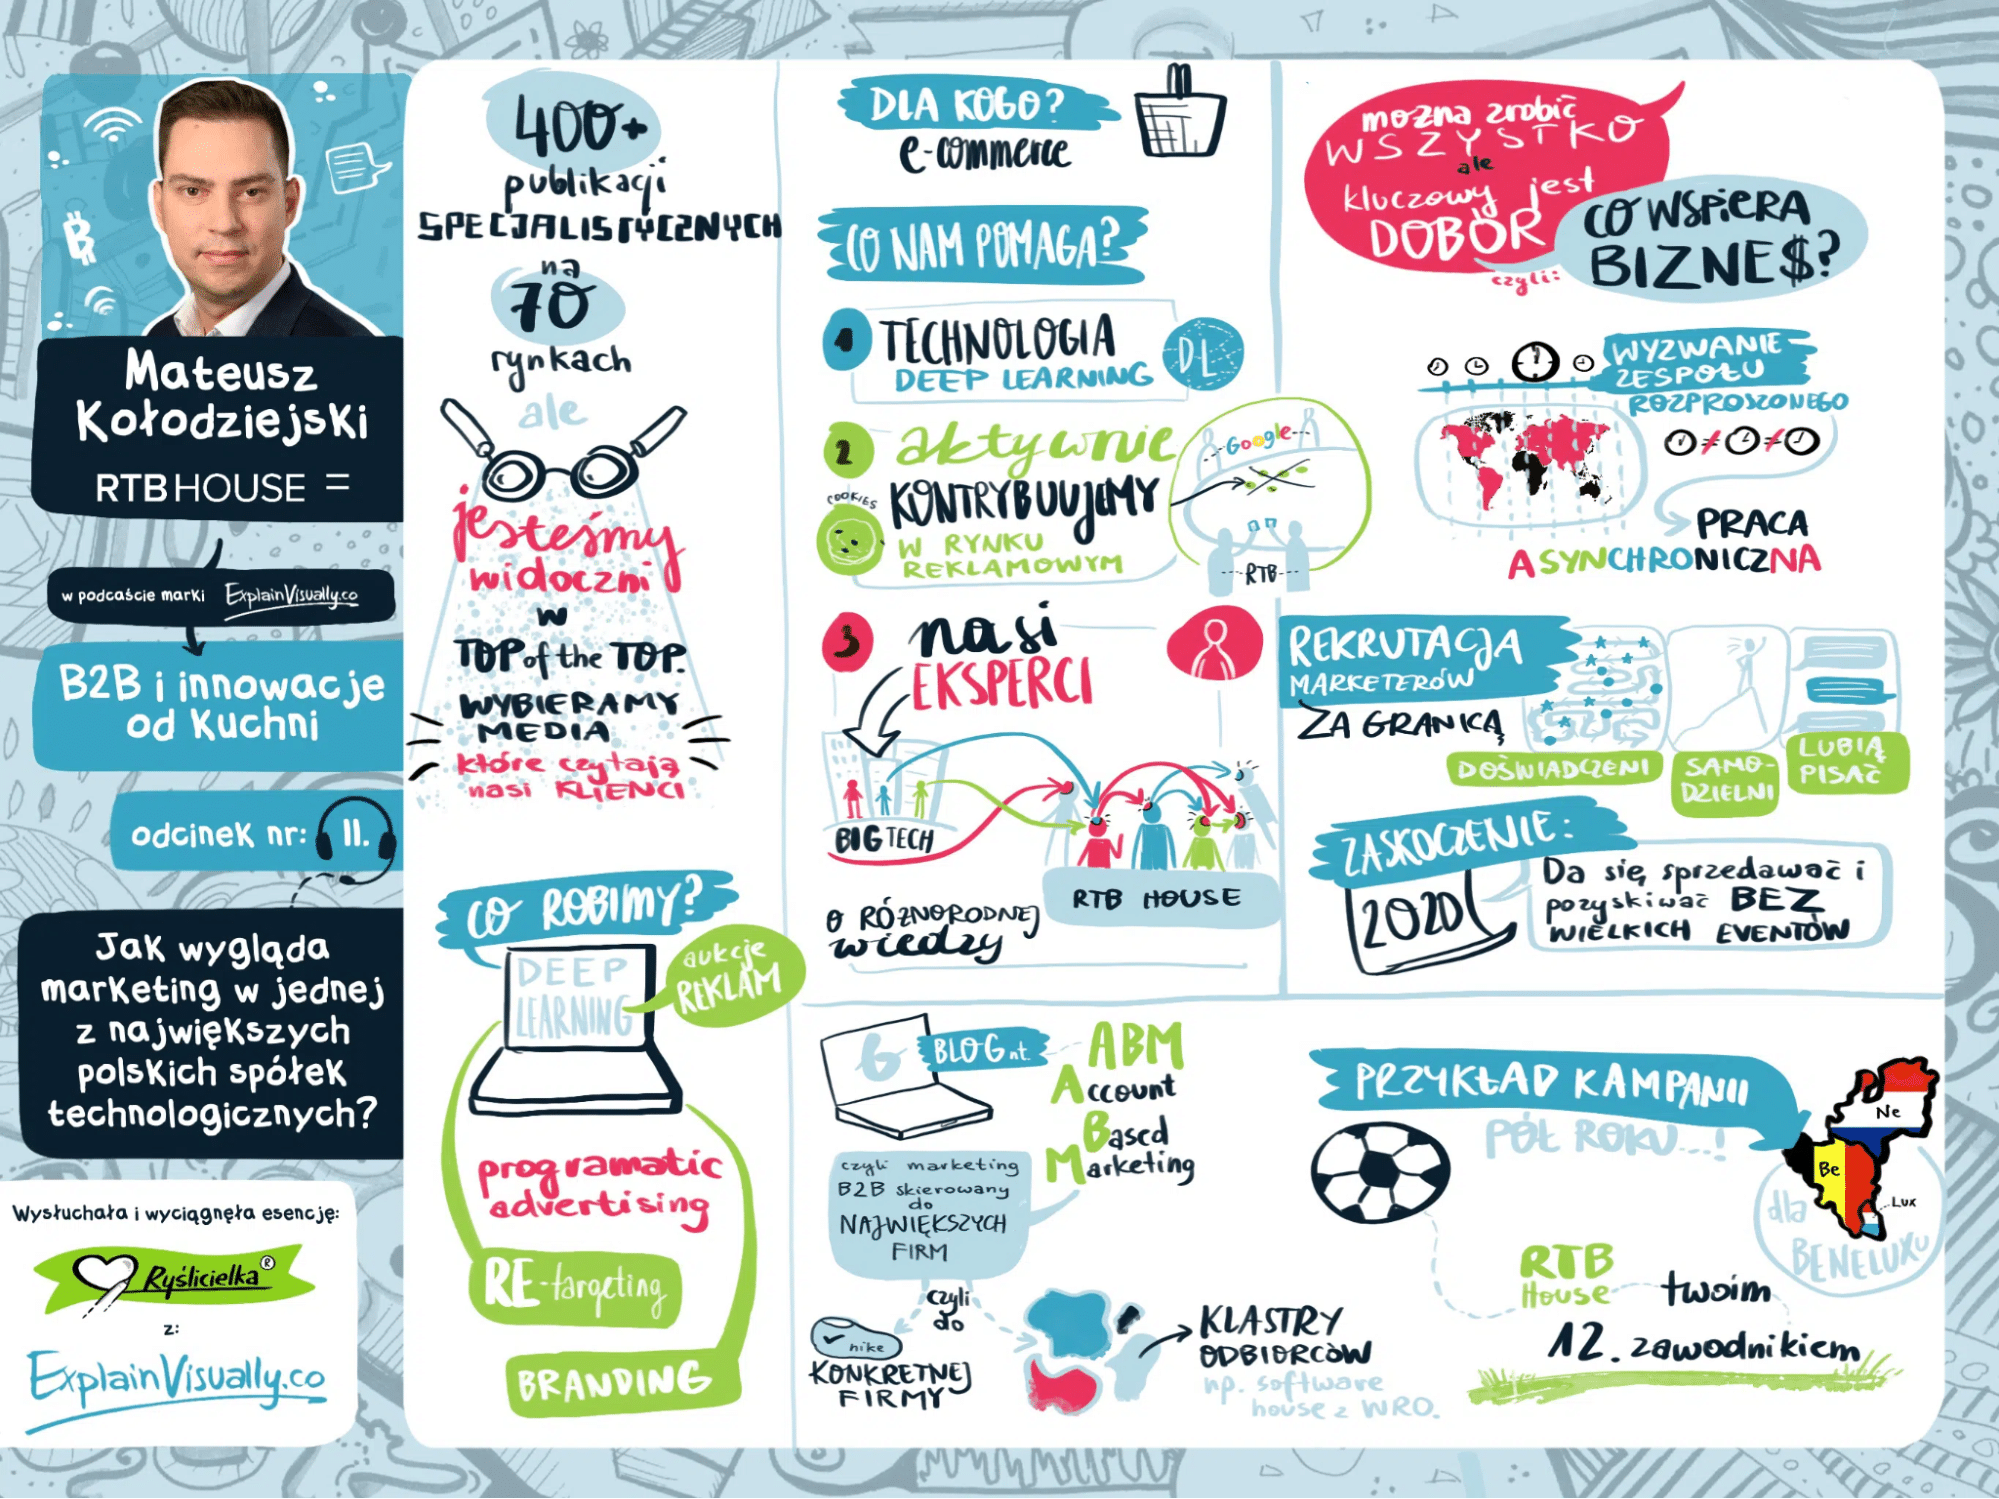 Mateusz
Kołodziejski
RTB HOUSE
w podcaście marki ExplainVisually.co
B2B i innowacje
od Kuchni
odcinek nr: 11.
Jak wygląda
marketing w jednej
z największych
polskich spółek
technologicznych?
Wysłuchała i wyciągnęła esencję:
Ryślicielka®
z:
ExplainVisually.co
400+
publikacji
SPECJALISTYCZNYCH
na
70
rynkach
ale
jesteśmy
widoczni
w
TOP of the TOP.
WYBIERAMY
MEDIA
które czytają
nasi KLIENCI
CO ROBIMY?
DEEP
LEARNING
aukcje
REKLAM
programatic
advertising
RE-targeting
BRANDING
DLA KOGO?
e-commerce
CO NAM POMAGA?
1 TECHNOLOGIA
DEEP LEARNING
DL
2 aktywnie
KONTRYBUUJEMY
COOKIES
W RYNKU
REKLAMOWYM
Google
RTB
3 nasi
EKSPERCI
BIG TECH
RTB HOUSE
O RÓŻNORODNEJ
wiedzy
można zrobić
WSZYSTKO
ale
kluczowy jest
DOBÓR
czyli:
CO WSPIERA
BIZNE$?
WYZWANIE
ZESPOŁU
ROZPROSZONEGO
PRACA
ASYNCHRONICZNA
REKRUTACJA
MARKETERÓW
ZA GRANICĄ
DOŚWIADCZENI
SAMO-
DZIELNI
LUBIĄ
PISAĆ
ZASKOCZENIE:
2020
Da się sprzedawać i
pozyskiwać BEZ
WIELKICH EVENTÓW
BLOG nt.
ABM
Account
Based
Marketing
czyli marketing
B2B skierowany
do
NAJWIĘKSZYCH
FIRM
czyli
do
nike
KONKRETNEJ
FIRMY
KLASTRY
ODBIORCÓW
np. software
house z WRO.
PRZYKŁAD KAMPANII
PÓŁ ROKU...!
Ne
Be
Lux
dla
BENELUXU
RTB
House
twoim
12. zawodnikiem